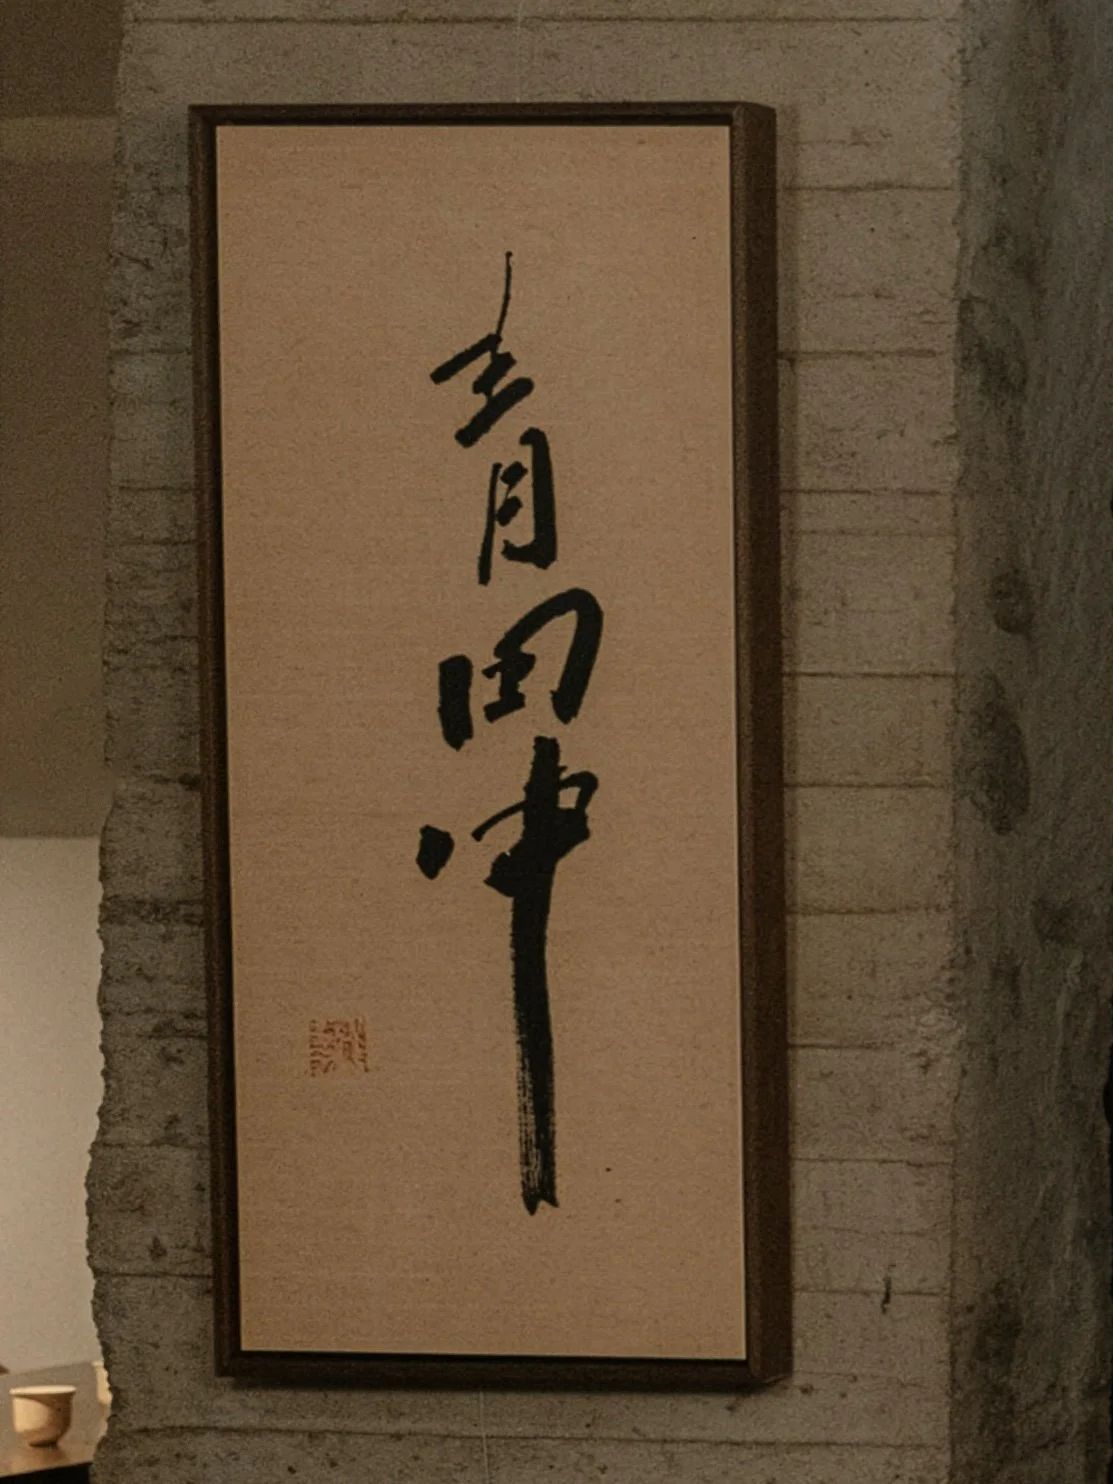 青田中